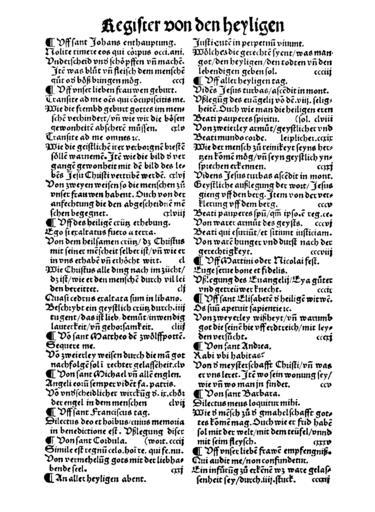 Register von den heyligen
¶ Uff sant Johans enthauptung.
Nolite timere eos qui corpus occi. ani.
Underscheid vnd schöpffen vñ mache.
Itē was blůt vñ fleisch dem mensche
gůt od böß bringen mög. cccj
¶ Uff vnser lieben frauwen geburt.
Transite ad me oēs qui concupiscitis me.
Wie die frembd geburt gottes im mensch
sche verhindert/ vñ wie wir die bösen
gewonheit abscheñ müssen. cxlo
Transite ad me omnes ꝛc.
Wie die geistliche irer verborgnē beste
söllē warnemē. Itē wie die bild d ver
gangē gewonheit mit dē bild des le-
bēs Jesu Christi vertribē werdē. cxlvj
Von zweyen weisen so die menschen zů
vnser frauwen habent. Ouch von der
anfechtung die den abgescheidnē mē
schen begegnet. cxlvij
¶ Uff des heilgē crütz erhebung.
Ego si exaltatus fuero a terra.
Von dem heilsamen crütz/ dz Christus
mit seiner mēscheit selber ist/ vñ wie er
in vns erhabē vñ erhöcht wirt. cl
Wie Christus alle ding nach im zücht/
dz ist/ wie er den mensche durch vil lei
den bereittet. clj
Quasi cedrus exaltata sum in libano.
Beschrybt ein geystlich crütz durch.iiij
tugent/ das ist lieb. demůt inwendig
lauterkeit/ vñ gehorsamkeit. cliij
¶ Vō sant Mattheo dē zwölffpottē.
Sequere me.
Vō zweierley weisen durch die mā got
nachfolgē sol. rechter gelassēheit. clv
¶ Von sant Michael vñ allē englen.
Angeli eorū semper vidēt fa. patris.
Vō vnderscheidlicher wirckūg d. ix. chō
der engel in dem menschen clvij
¶ Uff sant Franciscus tag.
Dilectus deo et hoibus/ cuius memoria
in benedictione est. Ußlegung diser
¶ Von sant Cordula. (wort. cccij
Simile est regnū celo. hoi te. qui fe. nu.
Von vermehelūg gots mit der liebhab
bende seel. cxxj
¶ An aller heyligen abent.
Justi autē in perpetuū viuunt.
Wölches die gerechtē syent/ was man
got/ den heyligen/ den todten vñ den
lebendigen geben sol. cccij
¶ Uff aller heyligen tag.
Vidēs Jesus turbas/ ascēdit in mont.
Ußlegūg des euāgelij vō dē.viij. selig-
heitē. Ouch wie man die heiligen eren
Beati pauperes spiritu. (sol. clviij
Von zweierley armůt/ geystlicher vnd
Beati mundo corde. leiplicher. cccij
Wie der mensch zů reinikeyt seyns her-
zen komē mög/ vñ seyn geystlich yn-
sprechen erkennen. cccxj
Videns Jesus turbas ascēdit in mont.
Geystliche außlegung der wort/ Jesus
gieng vff den berg. Item von der ver-
klerung vff dem berg. cccv
Beati pauperes spū/ qm̄ ipsoꝝ ē reg. ce.
Von warer armůt des geysts. cccvj
Beati qui esuriūt/ et sitiunt iusticiam.
Von warē hunger vnd durst nach der
gerechtikeyt. cccvij
¶ Uff Martini oder Nicolai fest.
Euge serue bone et fidelis.
Ußlegung des Euangelij/ Eya gůter
vnd getreuwer knecht. cccix
¶ Uff sant Elisabetē d heiligē witwē.
Os iusti meditabitur sapientie ꝛc.
Von zweyerley wißheyt/ vñ warumb
got die seinē hie vff erdtreich/ mit ley-
den versůcht. cccxj
¶ Von sant Andrea.
Rabi vbi habitas
Von d meysterschafft Christi/ vñ was
er vns leret. Itē wo sein wonung sey/
wie vñ wo man jn findet. ccv
¶ Von sant Barbara.
Dilectus meus loquitur mihi.
Wie d mēsch zů d gmahelschafft got-
tes komē mag. Ouch wie er frid habē
sol mit der welt/ mit dem teüfel/ vnnd
mit seim fleysch. cxxv
¶ Uff vnser lieben frawē empfengniß.
Qui audit me/ non confundetur.
Ein infürūg zů erkenē wz ware gelas-
senheit sey/ durch.iiij. stuck. cccxij